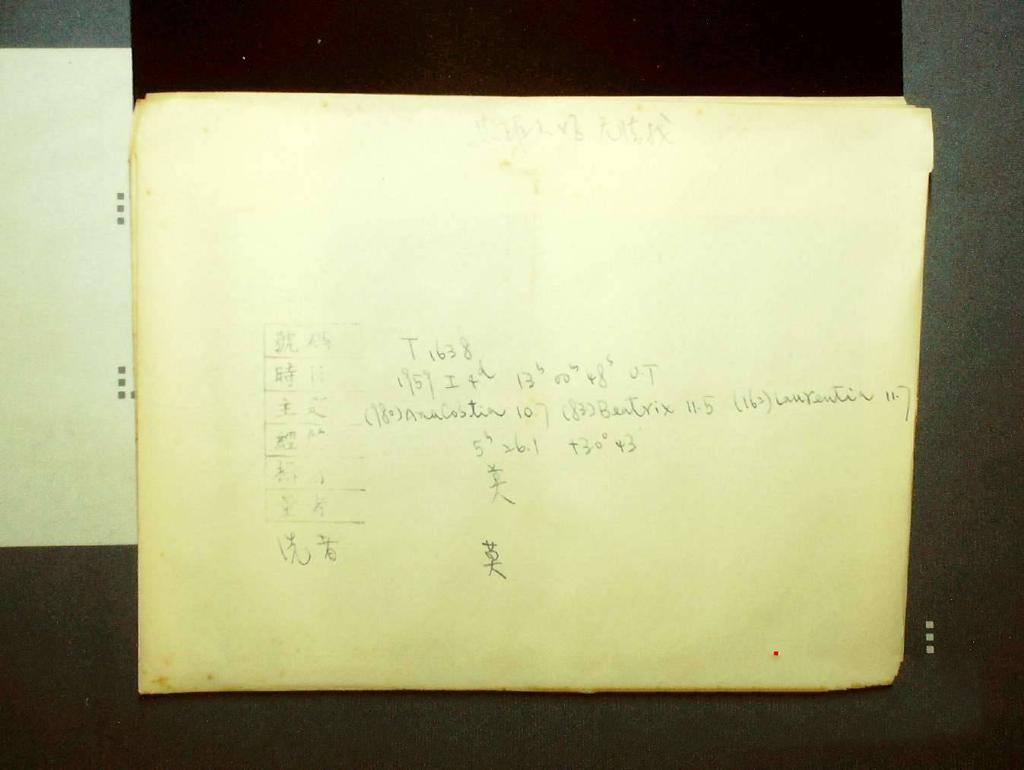 號 T 1638
時 1959 I 4ᵈ 13ʰ 00ᵐ 48ˢ U.T
主 (980) Anacostia 10.7 (83) Beatrix 11.5 (162) Laurentia 11.7
5ʰ 26.1 +30° 43'
莫
洗者 莫